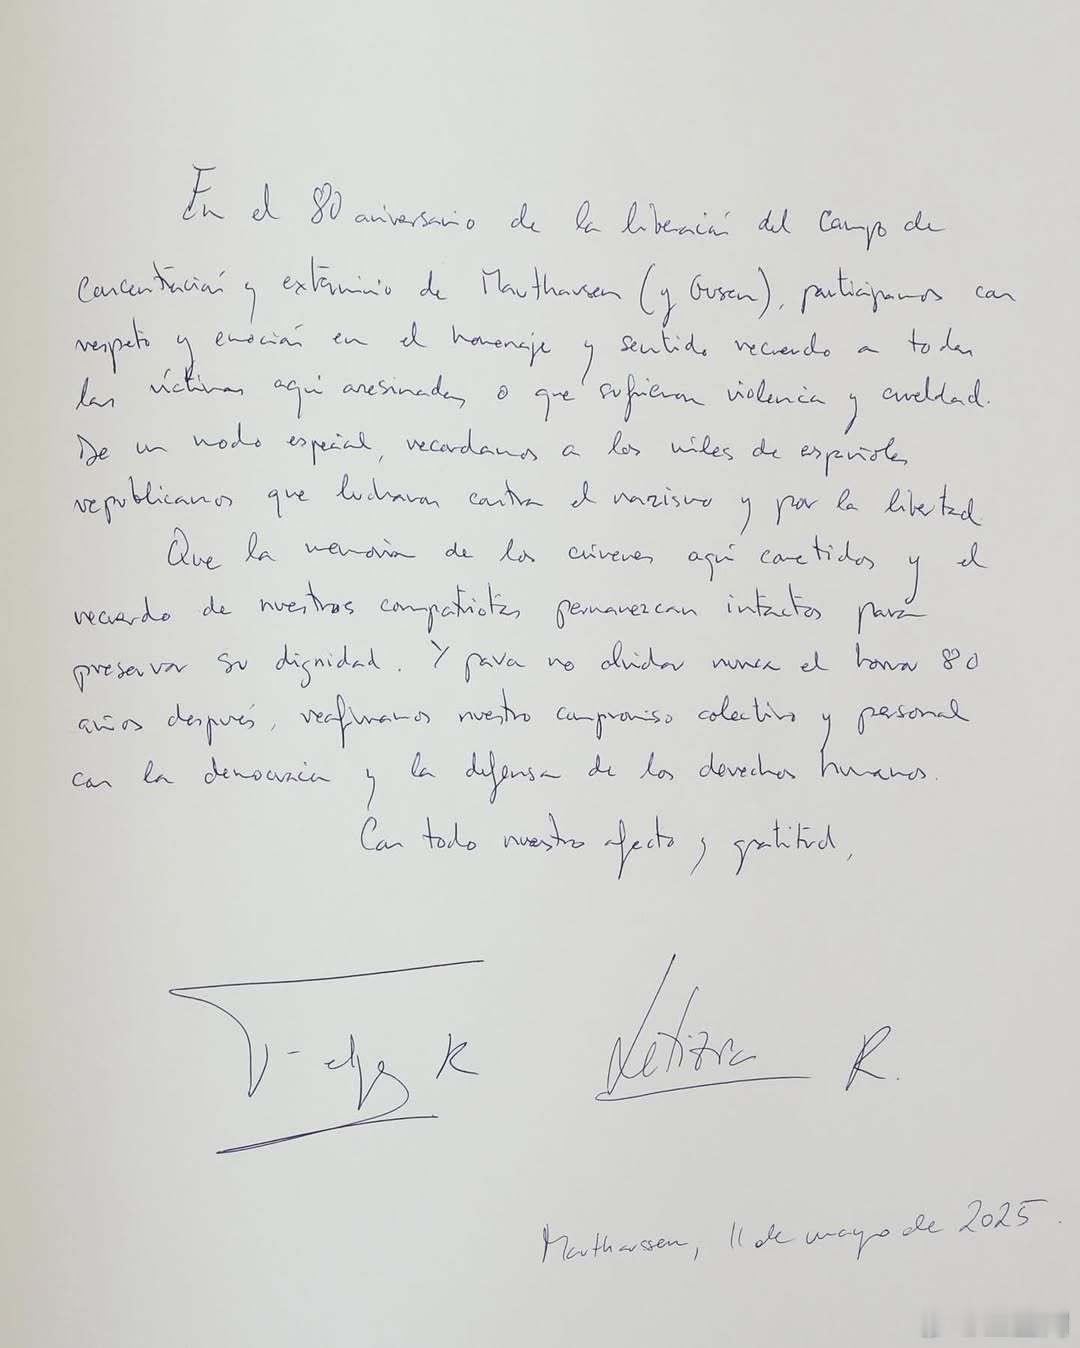 En el 80 aniversario de la liberación del Campo de
Concentración y exterminio de Mauthausen (y Gusen), participamos con
respeto y emoción en el homenaje y sentido recuerdo a todas
las víctimas aquí asesinadas o que sufrieron violencia y crueldad.
De un modo especial, recordamos a los miles de españoles
republicanos que lucharon contra el nazismo y por la libertad
Que la memoria de los crímenes aquí cometidos y el
recuerdo de nuestros compatriotas permanezcan intactos para
preservar su dignidad. Y para no olvidar nunca el horror 80
años después, reafirmamos nuestro compromiso colectivo y personal
con la democracia y la defensa de los derechos humanos.
Con todo nuestro afecto y gratitud,
Felipe R Letizia R.
Mauthausen, 11 de mayo de 2025.